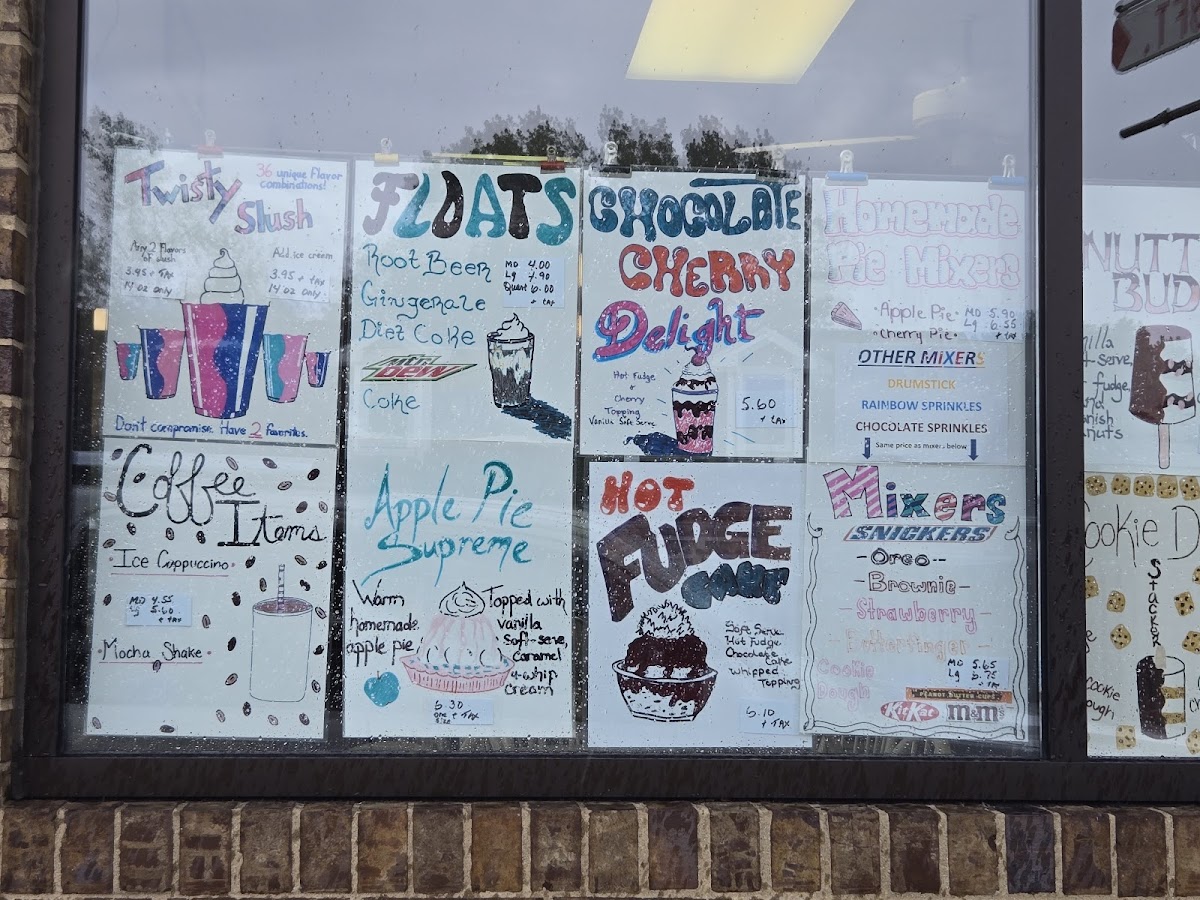 Twisty
Slush
36 unique Flavor
combinations!
Any 2 Flavors
of slush
3.95 + TAX
14 oz only
Add ice cream
3.95 + tax
14 oz only
Don't compromise. Have 2 favorites.
FLOATS
Root Beer
Gingerale
Diet Coke
Mtn
DEW
Coke
MD 4.00
Lg 4.90
Quart 6.00
+ tax
CHOCOLATE
CHERRY
Delight
Hot Fudge
+
Cherry
Topping
Vanilla Soft Serve
5.60
+ tax
Homemade
Pie Mixers
Apple Pie
Cherry Pie
MD 5.90
Lg 6.55
+ TAX
OTHER MIXERS
DRUMSTICK
RAINBOW SPRINKLES
CHOCOLATE SPRINKLES
Same price as mixers below
NUTT
BUD
Coffee
Items
Ice Cappuccino
MD 4.55
Lg 5.60
+ TAX
Mocha Shake
Apple Pie
Supreme
Warm
homemade
apple pie
Topped with
vanilla
soft-serve,
caramel
+ whip
cream
6.30
one size + TAX
HOT
FUDGE
CAKE
Soft Serve
Hot Fudge
Chocolate
Cake
Whipped
Topping
6.10
+ TAX
Mixers
SNICKERS
-Oreo--
-Brownie-
-Strawberry-
Butterfinger-
Cookie
Dough
MD 5.65
LG 6.75
+ TAX
PEANUT BUTTER CUPS
KitKat
m&m's
ookie D
Stacker
ookie
ough